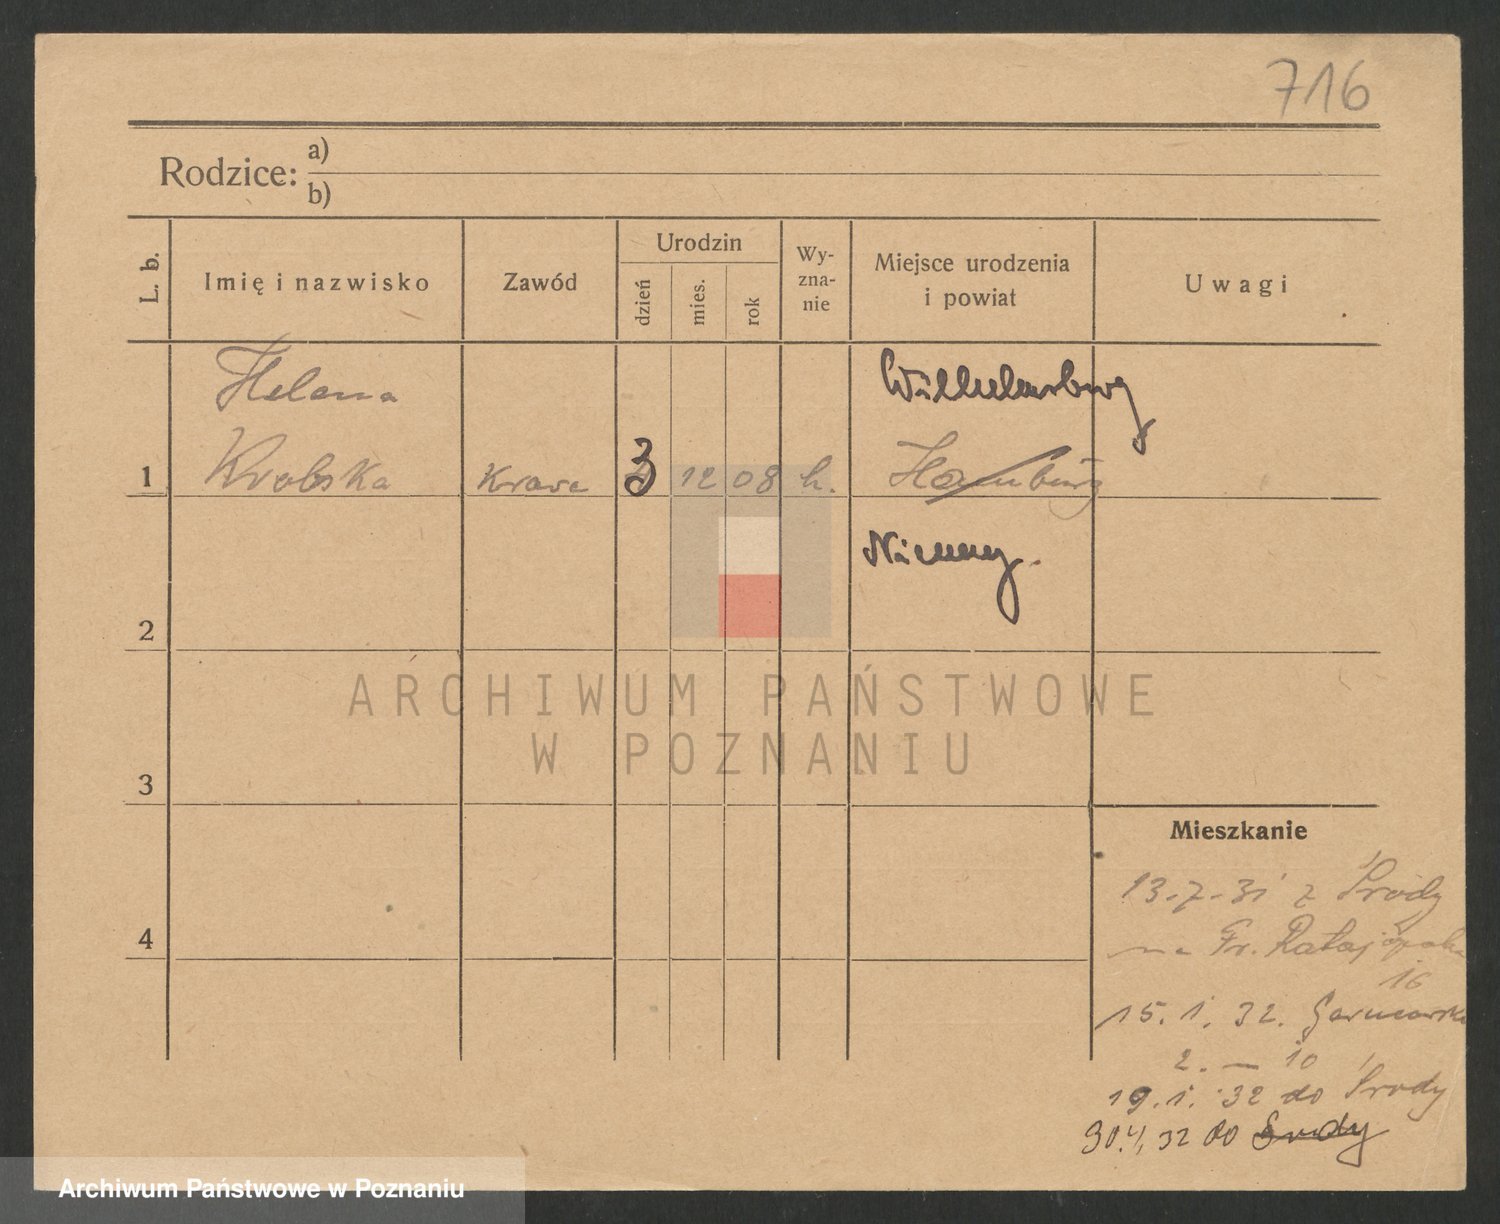 716
Rodzice: a)
b)
L. b.
Imię i nazwisko
Zawód
Urodzin
dzień
mies.
rok
Wy-
zna-
nie
Miejsce urodzenia
i powiat
Uwagi
Helena
Wilhelmsburg
1 Krobska Krawc 3 12 08 k. Hamburg
Niemcy.
2
ARCHIWUM PAŃSTWOWE
W POZNANIU
3
Mieszkanie
13-7-31 z Środy
na Fr. Ratajczaka
16
4
15. 1. 32. Garncarska
2. — 10
19. 1. 32 do Środy
30.4.32 do Środy
Archiwum Państwowe w Poznaniu